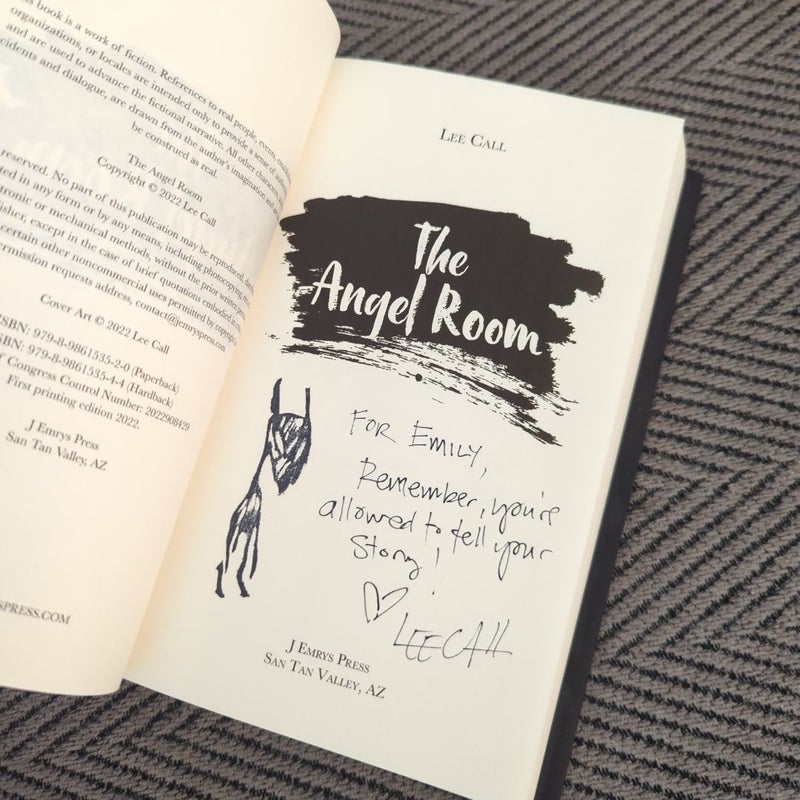 is book is a work of fiction. References to real people, events,
organizations, or locales are intended only to provide a sense of
and are used to advance the fictional narrative. All other
cidents and dialogue, are drawn from the author's imagination and
be construed as real.
The Angel Room
Copyright © 2022 Lee Call
reserved. No part of this publication may be reproduced,
ted in any form or by any means, including photocopying,
ctronic or mechanical methods, without the prior written
lisher, except in the case of brief quotations embodied in
certain other noncommercial uses permitted by copyright
ermission requests address, contact@jemryspress.com
Cover Art © 2022 Lee Call
ISBN: 979-8-9861535-2-0 (Paperback)
BN: 979-8-9861535-4-4 (Hardback)
f Congress Control Number: 2022908429
First printing edition 2022.
J Emrys Press
San Tan Valley, AZ
SPRESS.COM
Lee Call
The
Angel Room
FOR EMILY,
Remember, you're
allowed to tell your
Story!
LEE CALL
J Emrys Press
San Tan Valley, AZ